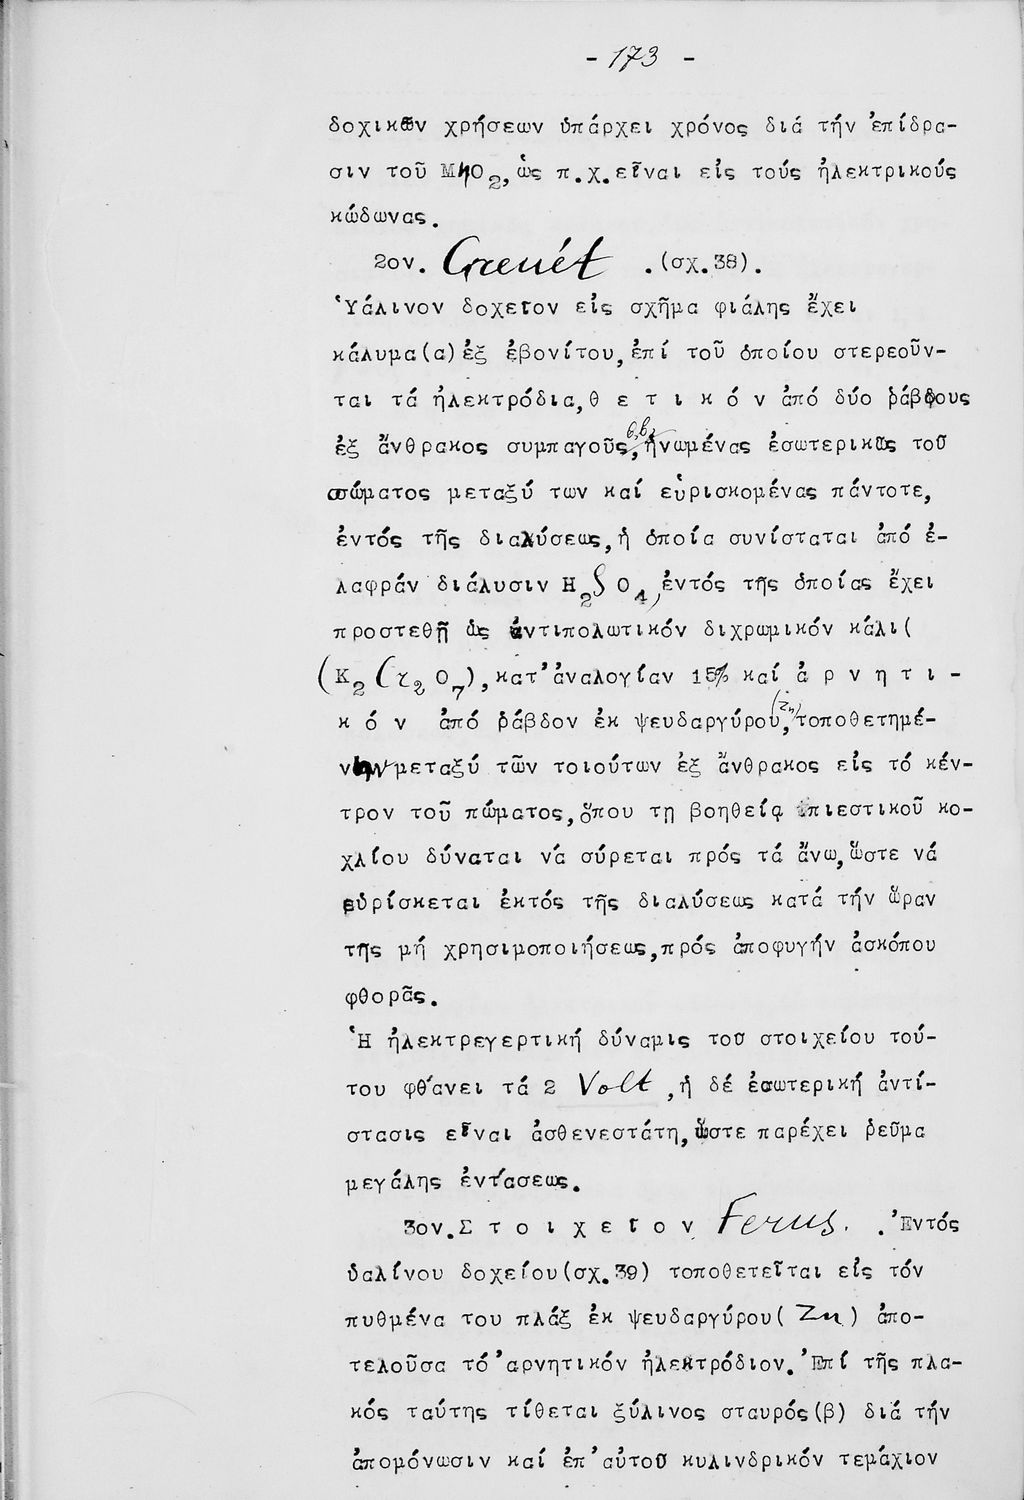 - 173 -
δοχικῶν χρήσεων ὑπάρχει χρόνος διά τήν ἐπίδρα-
σιν τοῦ MηO2, ὡς π.χ. εἶναι εἰς τούς ἠλεκτρικούς
κώδωνας.
2ον. Grenét . (σχ. 38).
Ὑάλινον δοχεῖον εἰς σχῆμα φιάλης ἔχει
κάλυμα(α) ἐξ ἐβονίτου, ἐπί τοῦ ὁποίου στερεοῦν-
ται τά ἠλεκτρόδια, θ ε τ ι κ ό ν ἀπό δύο ῥάβδους
ἐξ ἄνθρακος συμπαγοῦς β,β, ἡνωμένας ἐσωτερικῶς τοῦ
σώματος μεταξύ των καί εὑρισκομένας πάντοτε,
ἐντός τῆς διαλύσεως, ἡ ὁποία συνίσταται ἀπό ἐ-
λαφράν διάλυσιν H2SO4, ἐντός τῆς ὁποίας ἔχει
προστεθῆ ὡς ἀντιπολωτικόν διχρωμικόν κάλι (
(K2Cr2O7), κατ' ἀναλογίαν 15% καί ἀ ρ ν η τ ι -
κ ό ν ἀπό ῥάβδον ἐκ ψευδαργύρου (Zn), τοποθετημέ-
νην μεταξύ τῶν τοιούτων ἐξ ἄνθρακος εἰς τό κέν-
τρον τοῦ πώματος, ὅπου τῃ βοηθείᾳ πιεστικοῦ κο-
χλίου δύναται νά σύρεται πρός τά ἄνω, ὥστε νά
εὑρίσκεται ἐκτός τῆς διαλύσεως κατά τήν ὥραν
τῆς μή χρησιμοποιήσεως, πρός ἀποφυγήν ἀσκόπου
φθορᾶς.
Ἡ ἠλεκτρεγερτική δύναμις τοῦ στοιχείου τού-
του φθάνει τά 2 Volt, ἡ δέ ἐσωτερική ἀντί-
στασις εἶναι ἀσθενεστάτη, ὥστε παρέχει ῥεῦμα
μεγάλης ἐντάσεως.
3ον. Σ τ ο ι χ ε ῖ ο ν Ferus. . Ἐντός
ὑαλίνου δοχείου (σχ. 39) τοποθετεῖται εἰς τόν
πυθμένα του πλάξ ἐκ ψευδαργύρου (Zn) ἀπο-
τελοῦσα τό ἀρνητικόν ἠλεκτρόδιον. Ἐπί τῆς πλα-
κός ταύτης τίθεται ξύλινος σταυρός (β) διά τήν
ἀπομόνωσιν καί ἐπ' αὐτοῦ κυλινδρικόν τεμάχιον